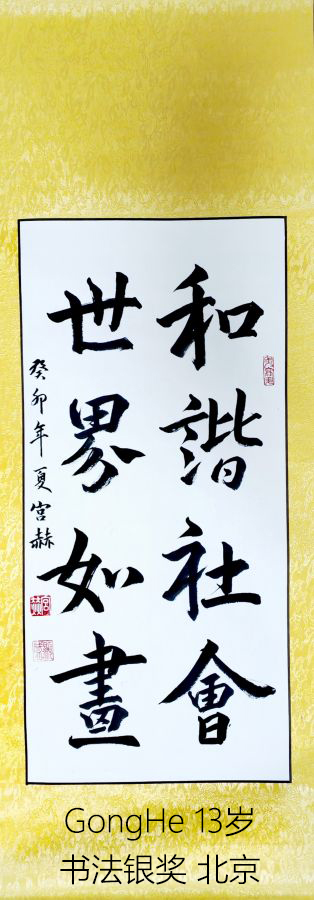 和諧社會
世界如畫
癸卯年夏宫赫
GongHe 13岁
书法银奖 北京